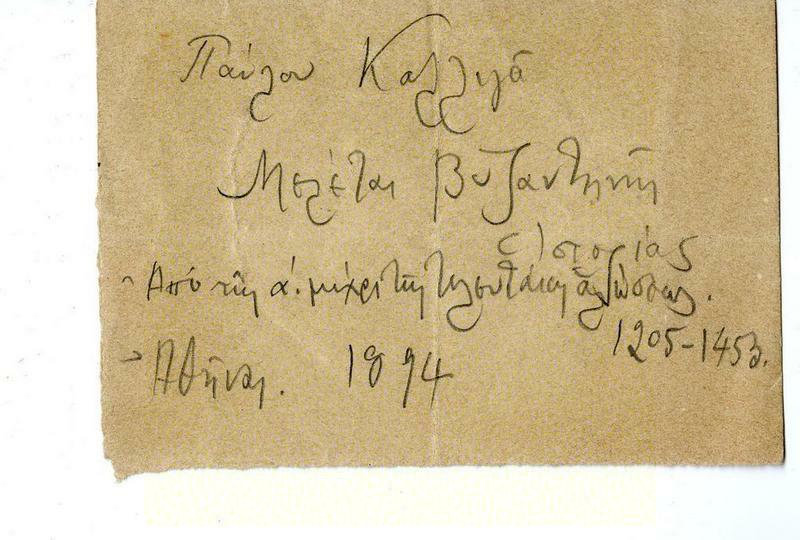 Παύλου Καλλιγᾶ
Μελέται Βυζαντινῆς
Ἱστορίας
Ἀπὸ τῆς α'. μέχρι τῆς τελευταίας ἁλώσεως.
1205-1453.
Ἀθῆναι. 1894